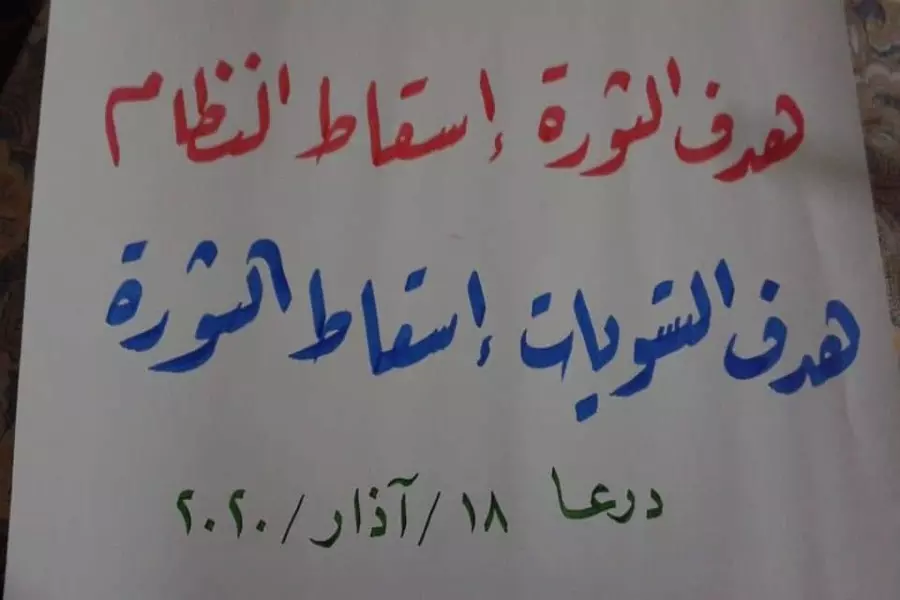 هدف الثورة إسقاط النظام
هدف التسويات إسقاط الثورة
درعا ١٨/آذار/٢٠٢٠